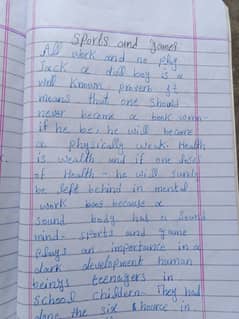 Sports and games
All work and no play
Jack a dull boy is a
well known proverb It
means that one should
never become a book worm-
if he be, he will became
a physically weak. Health
is wealth and if one loses
of Health - he will surely
be left behind in mental
work because a
sound body had a sound
mind- sports and game
plays an importance in a
development human
beings teenagers in
school children- They had
done the six hource in